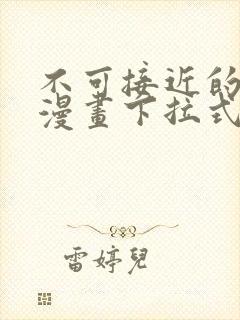 不可接近的
漫畫下拉式
雷婷兒